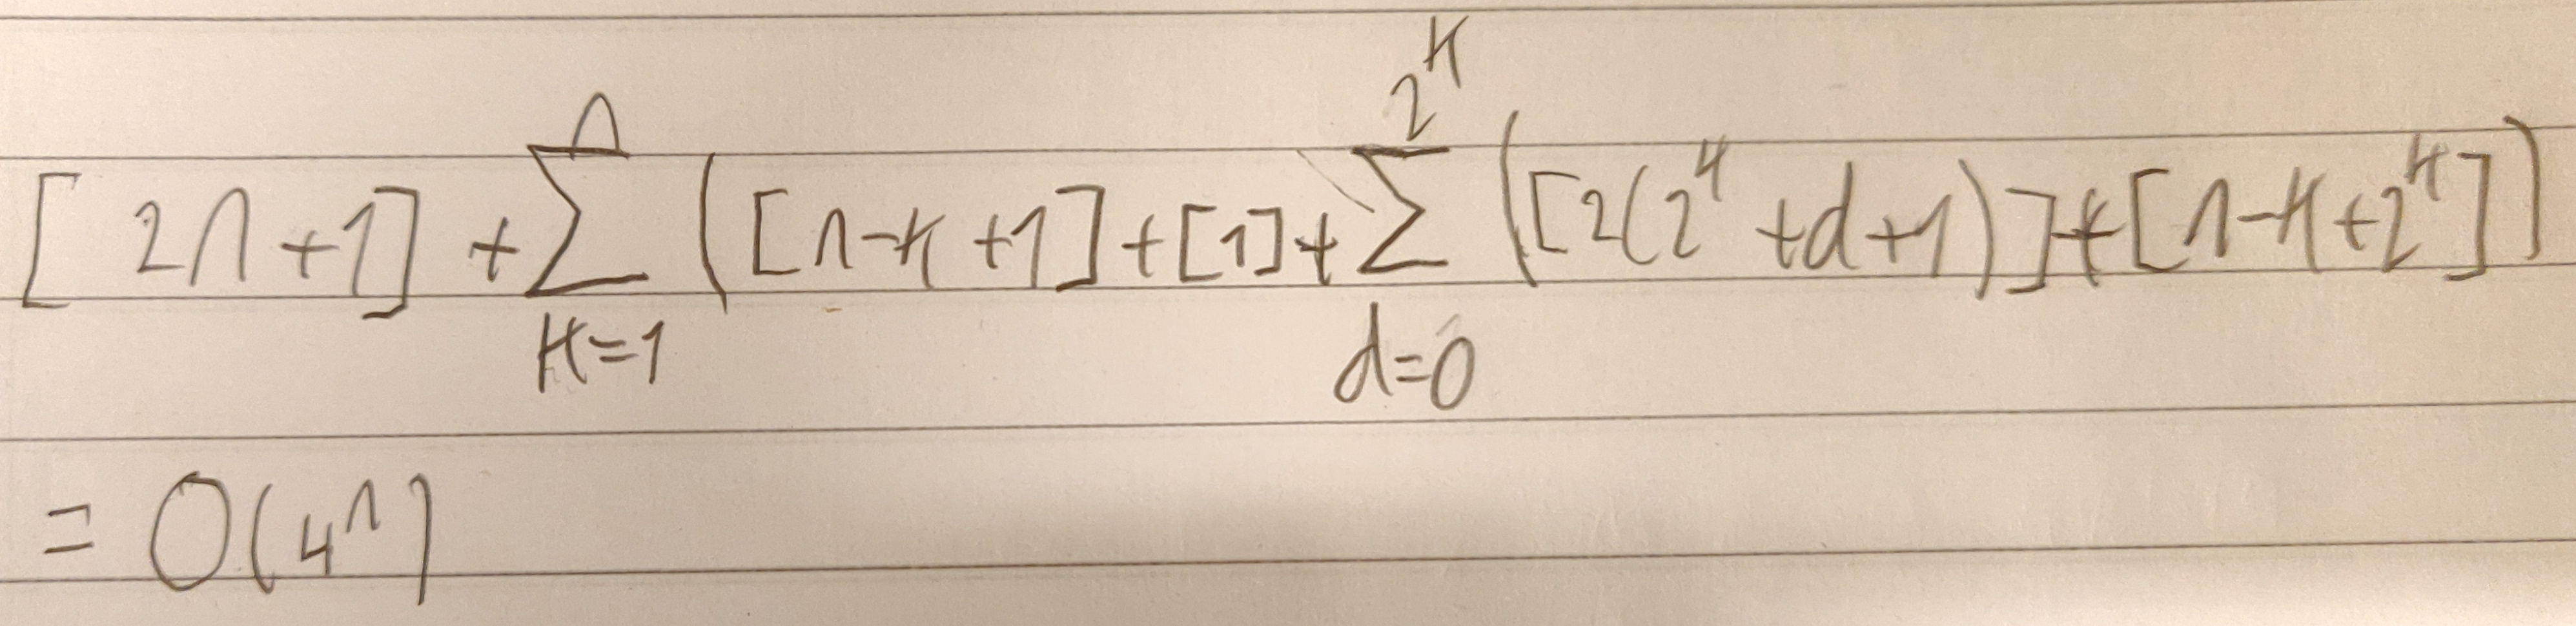 [2n+1] + \sum_{k=1}^{n} ([n-k+1] + [1] + \sum_{d=0}^{2^k} ([2(2^k+d+1)] + [n-k+2^k])
= O(4^n)